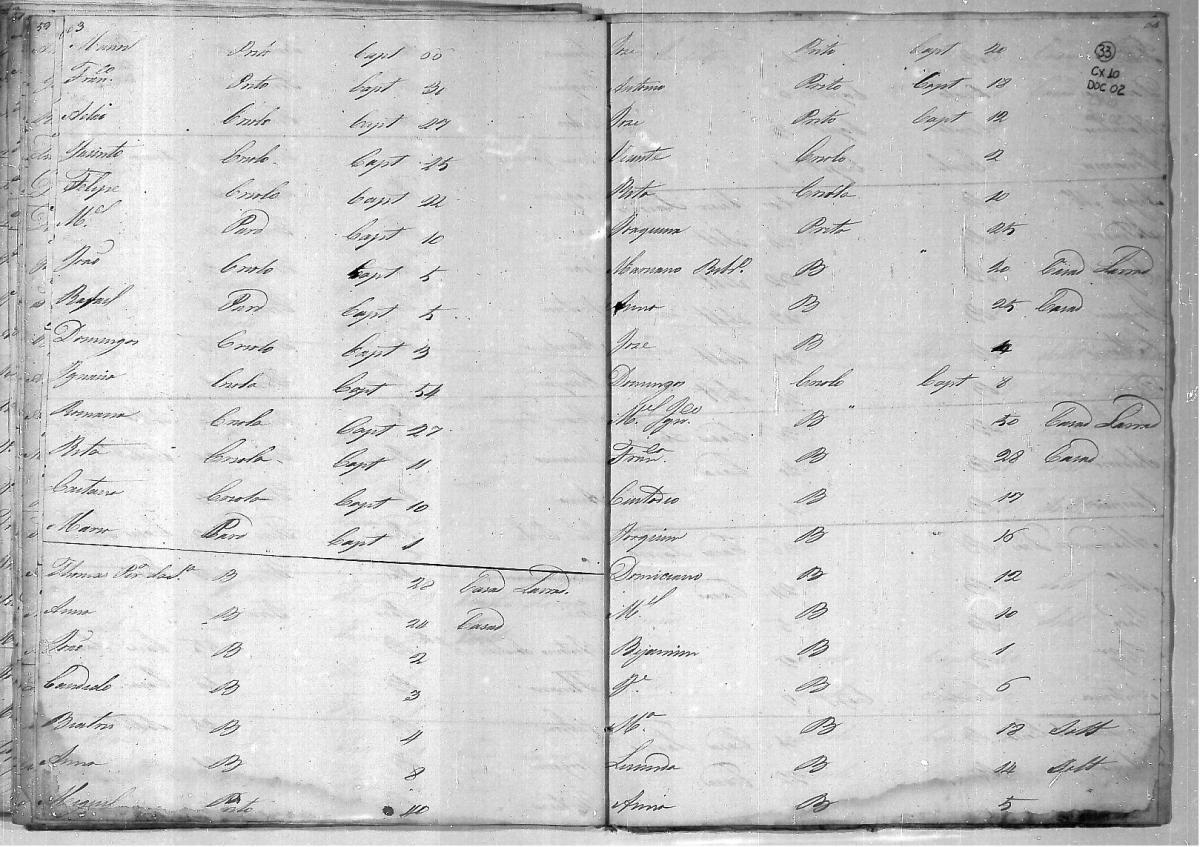 59 3
Manoel Preto Capt 60
Fran.co Preto Capt 31
Adão Criolo Capt 27
Jacinto Criolo Capt 25
Felipe Criolo Capt 22
M.el Pard Capt 10
João Criolo Capt 5
Rafael Pard Capt 5
Domingos Criolo Capt 3
Ignacia Criola Capt 54
Romana Criola Capt 27
Rita Criola Capt 11
Caetana Criola Capt 10
Maria Pard Capt 1
Thomas B 28 Casad Lavrad.
Anna B 24 Casad
José B 2
Candido B 3
Beatris B 4
Anna B 8
Miguel Preto 40
Jose Preto Capt 20
Antonio Preto Capt 18
Jose Preto Capt 12
Vicente Criolo 2
Rita Criola 10
Joaquina Preta 25
Marianno B 30 Casad Lavrad
Anna B 25 Casad
Jose B 4
Domingos Criolo Capt 8
M.el B 50 Casad Lavrad
Fran.ca B 28 Casad
Custodio B 17
Joaquim B 16
Domiciano B 12
M.el B 10
Bejamim B 1
J.e B 6
M.a B 18 Solt
Lucinda B 14 Solt
Anna B 5
33
CX 10
DOC 02